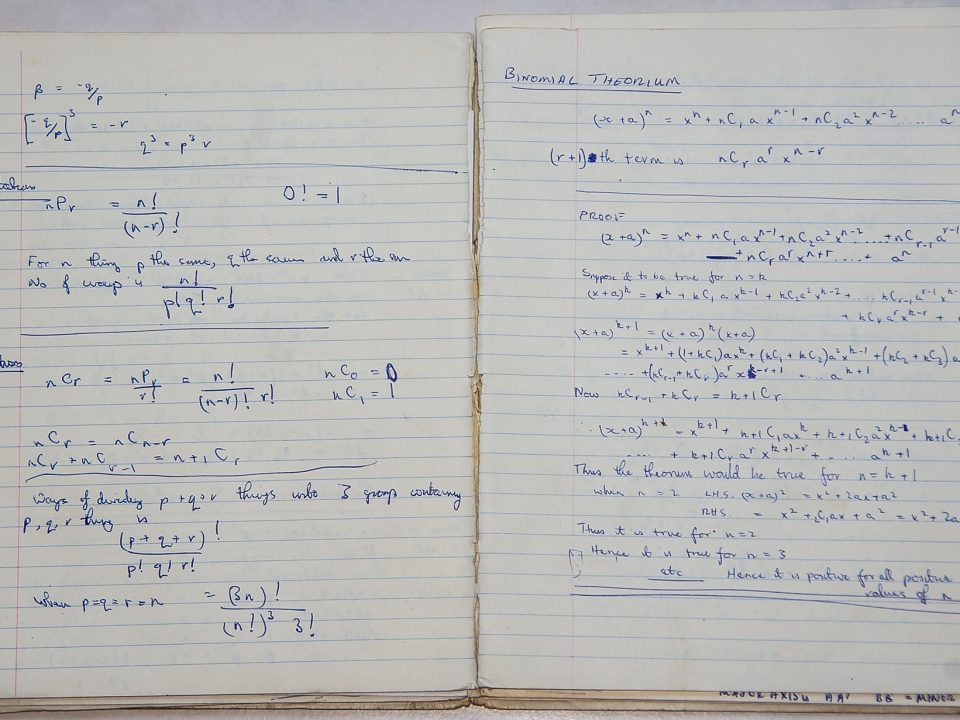 β = -q/p
[-q/p]³ = -r
q³ = p³ r
nPr = n!/(n-r)! 0! = 1
For n things p the same, q the same and r the same
No of ways is n!/(p! q! r!)
nCr = nPr/r! = n!/((n-r)! r!) nC0 = 0
nC1 = 1
nCr = nCn-r
nCr + nCr-1 = n+1Cr
Ways of dividing p+q+r things into 3 group containing
p, q, r things is
(p+q+r)!/(p! q! r!)
When p=q=r=n = (3n)!/((n!)³ 3!)
BINOMIAL THEORIUM
(x+a)ⁿ = xⁿ + nC1 a xⁿ⁻¹ + nC2 a² xⁿ⁻² .... aⁿ
(r+1)th term is nCr aʳ xⁿ⁻ʳ
PROOF
(x+a)ⁿ = xⁿ + nC1 a xⁿ⁻¹ + nC2 a² xⁿ⁻² ..... + nCr-1 aʳ⁻¹
+ nCr aʳ xⁿ⁺ʳ .... + aⁿ
Suppose it to be true for n=k
(x+a)ᵏ = xᵏ + kC1 a xᵏ⁻¹ + kC2 a² xᵏ⁻² + .... kCr-1 aʳ⁻¹ xᵏ⁻
+ kCr aʳ xᵏ⁻ʳ +
(x+a)ᵏ⁺¹ = (x+a)ᵏ (x+a)
= xᵏ⁺¹ + (1+kC1) a xᵏ + (kC1 + kC2) a² xᵏ⁻¹ + (kC2 + kC3) a
..... + (kCr-1 + kCr) aʳ xᵏ⁻ʳ⁺¹ + ... aᵏ⁺¹
Now kCr-1 + kCr = k+1Cr
∴ (x+a)ᵏ⁺¹ = xᵏ⁺¹ + k+1C1 a xᵏ + k+1C2 a² xᵏ⁻¹ + k+1C
.... + k+1Cr aʳ xᵏ⁺¹⁻ʳ + ... aᵏ⁺¹
Thus the theorium would be true for n=k+1
when n = 2 L.H.S. (x+a)² = x² + 2ax + a²
R.H.S. = x² + 2C1 ax + a² = x² + 2a
Thus it is true for n=2
Hence it is true for n=3
etc Hence it is positive for all positive
values of n
MAJOR AXIS AA' BB' = MINOR